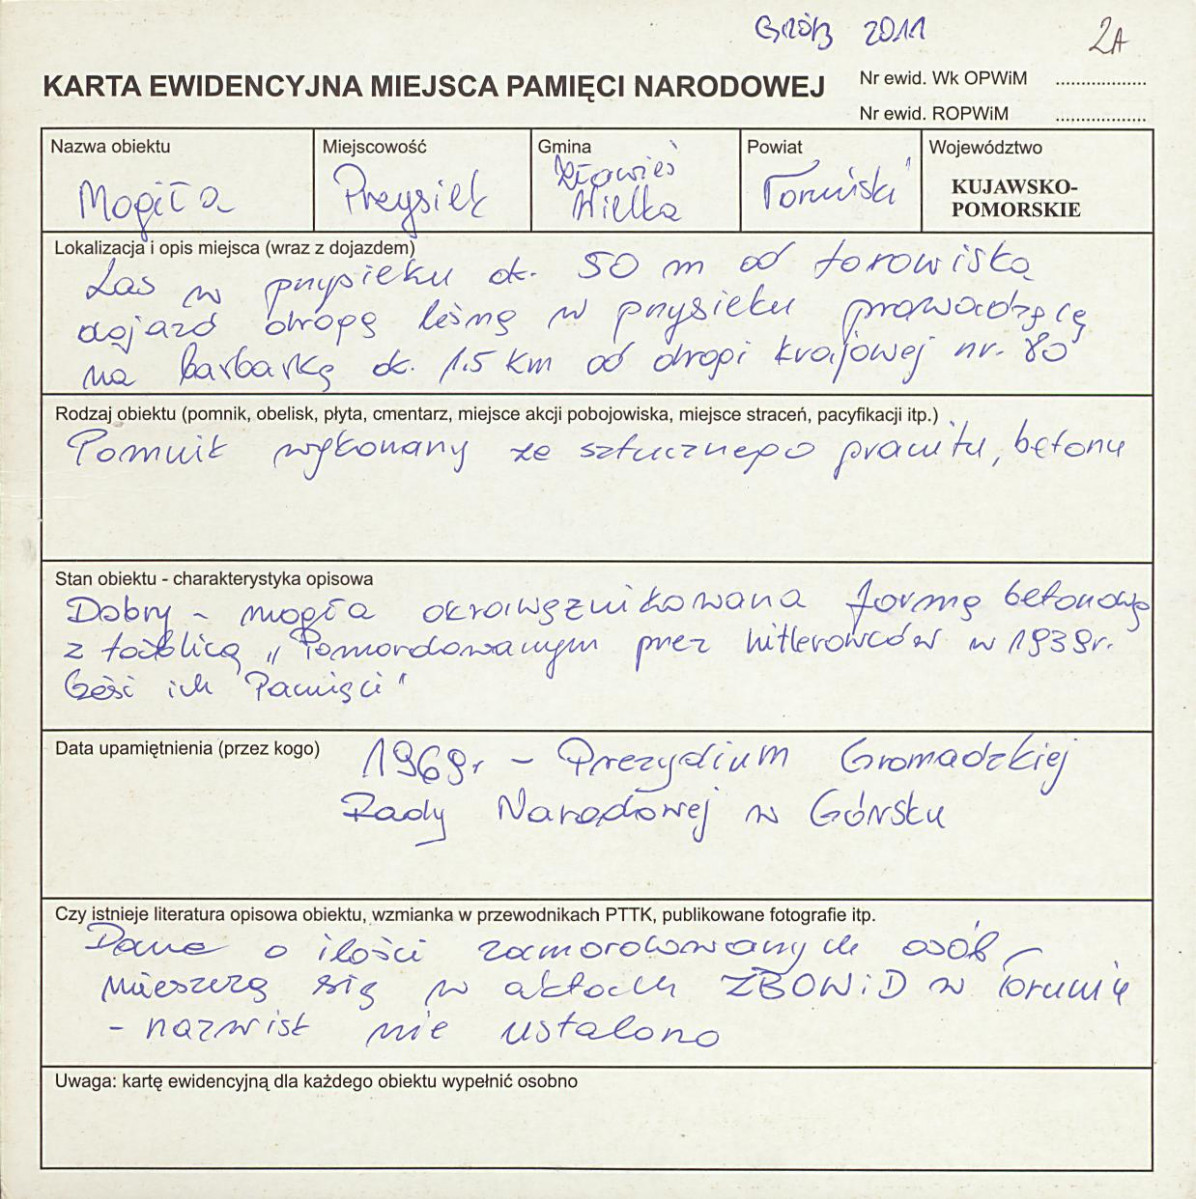 Grób 2011
2A
KARTA EWIDENCYJNA MIEJSCA PAMIĘCI NARODOWEJ
Nr ewid. Wk OPWiM ...................
Nr ewid. ROPWiM ...................
Nazwa obiektu
Mogiła
Miejscowość
Przysiek
Gmina
Zławieś
Wielka
Powiat
Toruński
Województwo
KUJAWSKO-
POMORSKIE
Lokalizacja i opis miejsca (wraz z dojazdem)
Las w przysieku ok. 50 m od torowiska
dojazd drogą leśną w przysieku prowadzącą
na barbarkę ok. 1.5 km od drogi krajowej nr. 80
Rodzaj obiektu (pomnik, obelisk, płyta, cmentarz, miejsce akcji pobojowiska, miejsce straceń, pacyfikacji itp.)
Pomnik wykonany ze sztucznego granitu, betonu
Stan obiektu - charakterystyka opisowa
Dobry - mogła okrawężnikowana formą betonową
z tablicą „Pomordowanym przez hitlerowców w 1939r.
Cześć ich Pamięci"
Data upamiętnienia (przez kogo)
1969r - Prezydium Gromadzkiej
Rady Narodowej w Górsku
Czy istnieje literatura opisowa obiektu, wzmianka w przewodnikach PTTK, publikowane fotografie itp.
Dane o ilości zamordowanych osób -
mieszczą się w aktach ZBOWiD w Toruniu
- nazwisk nie ustalono
Uwaga: kartę ewidencyjną dla każdego obiektu wypełnić osobno